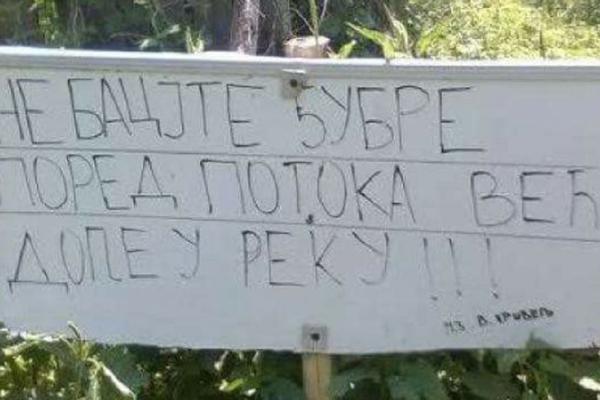 НЕ БАЦЈТЕ ЂУБРЕ
ПОРЕД ПОТОКА ВЕЋ
ДОПЕ У РЕКУ !!!
МЗ